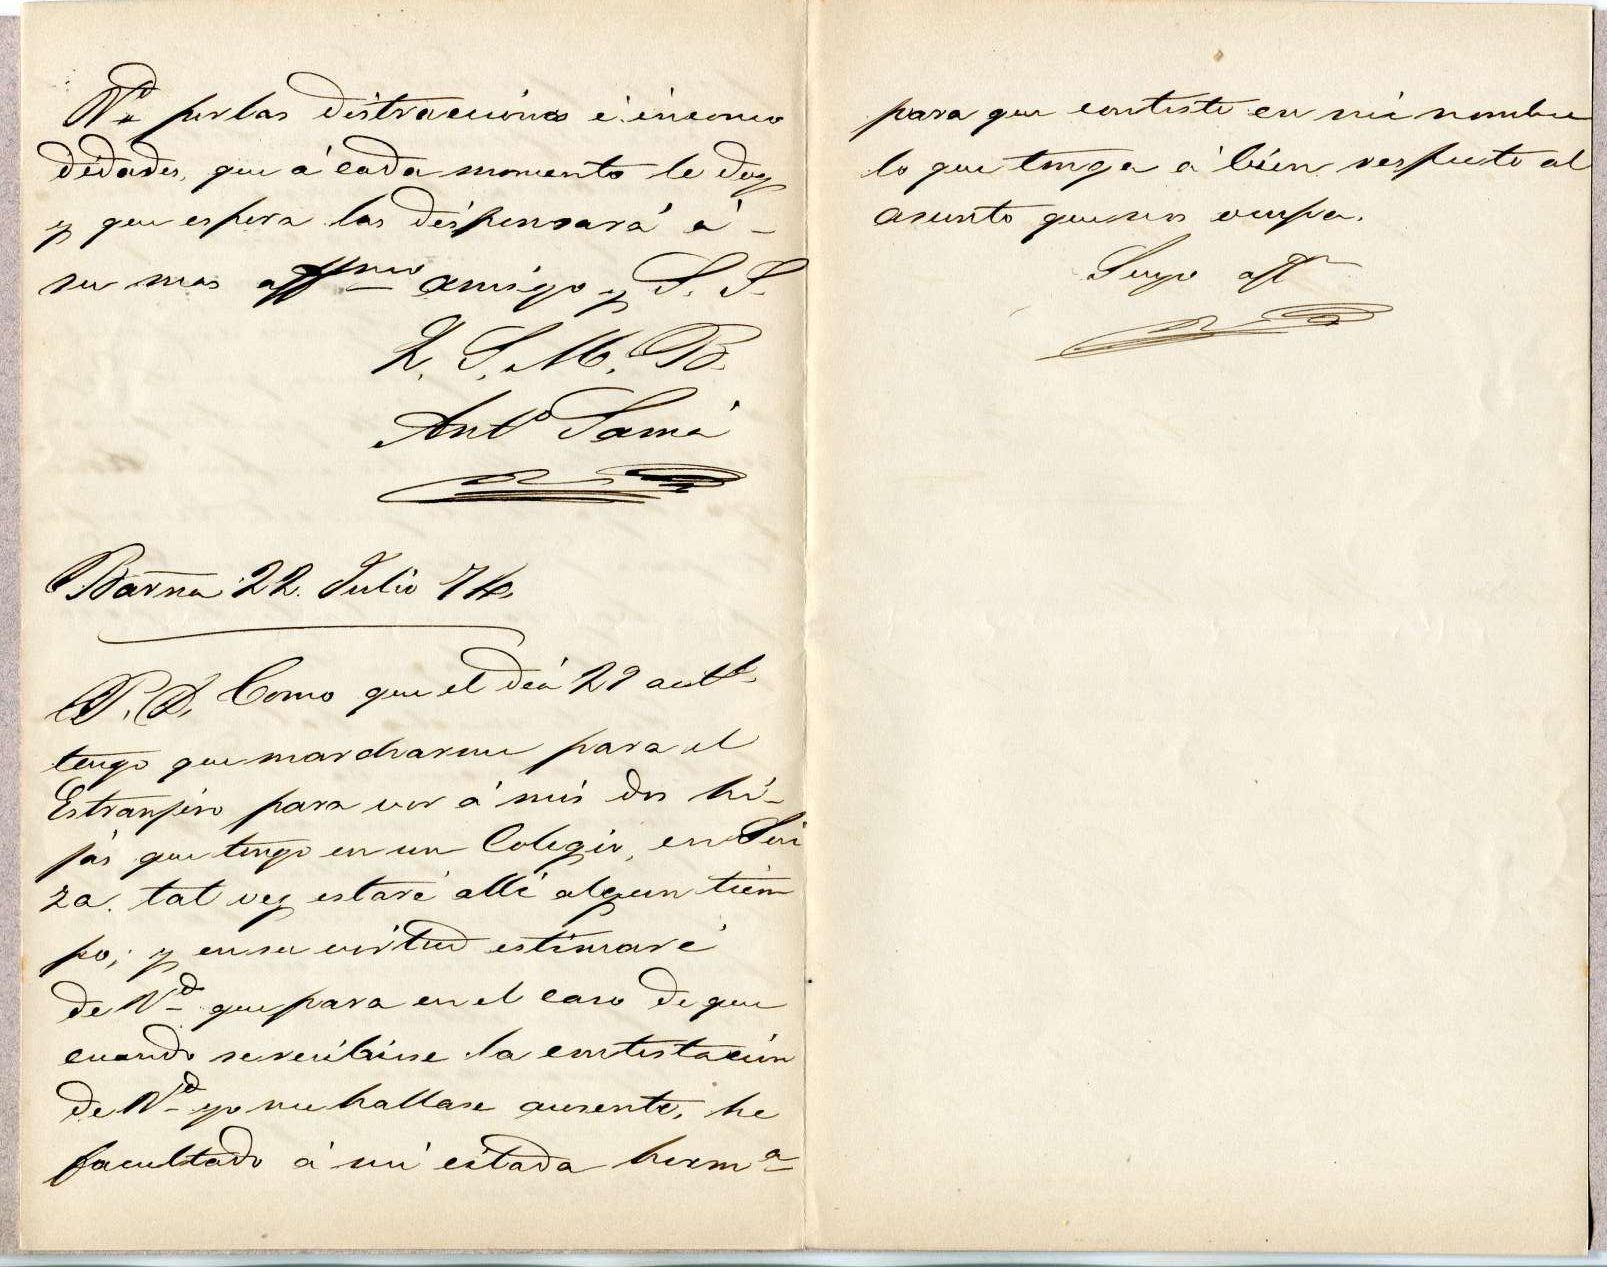 Vd por las distracciones é incomo
didades, que á cada momento le doy
y que espera las dispensará á -
su mas affmo amigo y S. S.
Q. S. M. B.
Anto Samá
Barna 22. Julio 74.
P. D. Como que el dia 29 actl.
tengo que marcharme para el
Estranjero para ver á mis dos hi-
jas que tengo en un Colegio, en Sui
za. tal vez estaré allí algun tiem
po; y en su virtud estimaré
de Vd que para en el caso de que
cuando se recibiese la contestacion
de Vd yo me hallase ausente, he
facultado á mi citada herma
para que conteste en mi nombre
lo que tenga á bien respecto al
asunto que nos ocupa.
Suyo aff